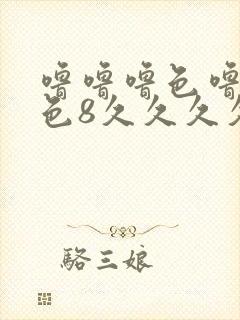 噜噜噜色噜
色8久久久久
骆三娘